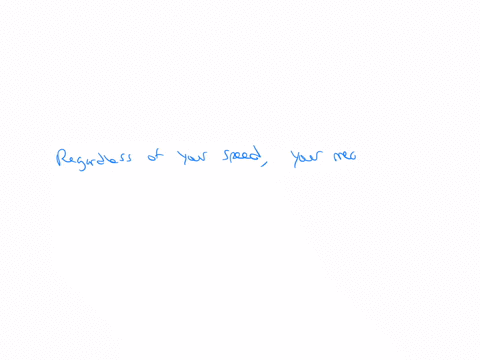 Regardless of your speed, your mec